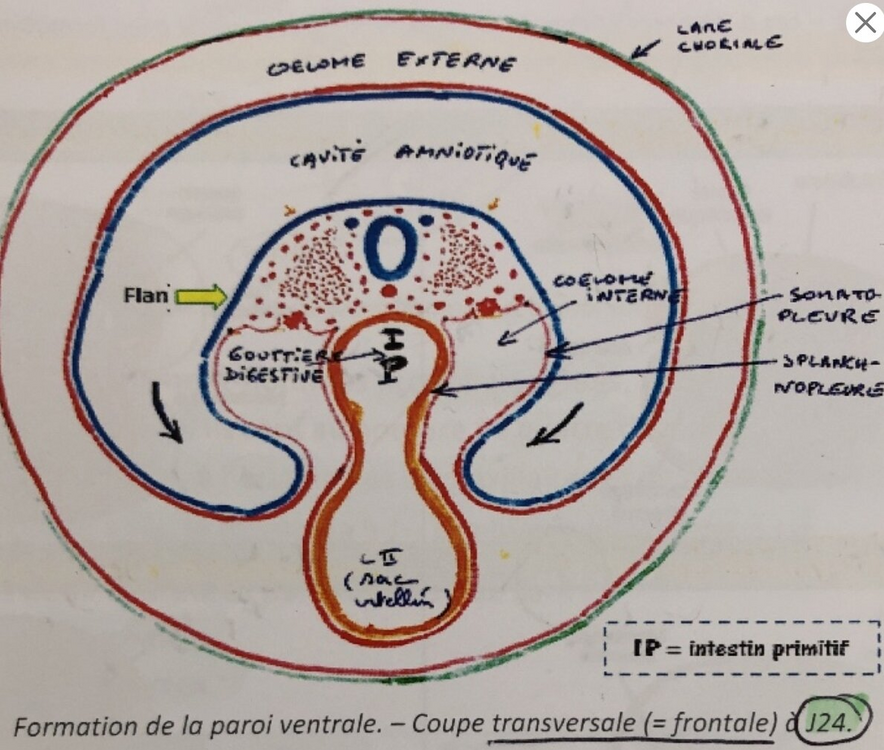 LAME
CHORIALE
COELOME EXTERNE
CAVITÉ AMNIOTIQUE
Flan
COELOME
INTERNE
SOMATO-
PLEURE
GOUTTIÈRE
DIGESTIVE
I
P
SPLANCH-
NOPLEURE
LII
(sac
vitellin)
IP = intestin primitif
Formation de la paroi ventrale. – Coupe transversale (= frontale) à J24.